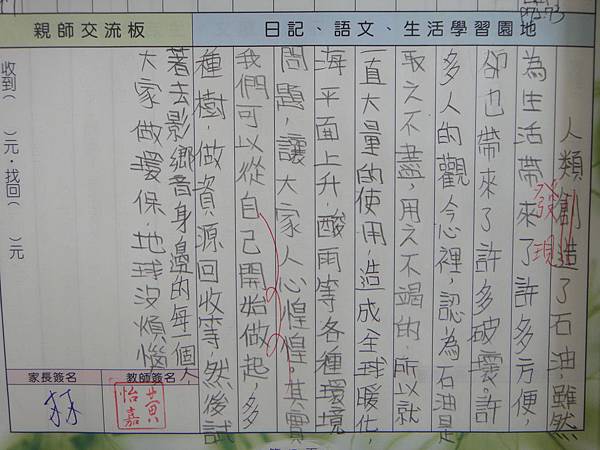 P72.73
日記、語文、生活學習園地
親師交流板
人類創造了石油,雖然
發現
為生活帶來了許多方便,
卻也帶來了許多破壞。許
多人的觀念裡,認為石油是
取之不盡,用之不竭的,所以就
一直大量的使用,造成全球暖化,
海平面上升,酸雨等各種環境
問題,讓大家人心惶惶。其實
我們可以從自己開始做起,多
種樹,做資源回收等,然後試
著去影響音身邊的每一個人,
大家做環保,地球沒煩惱
收到( )元‧找回( )元
家長簽名
教師簽名
黃怡嘉